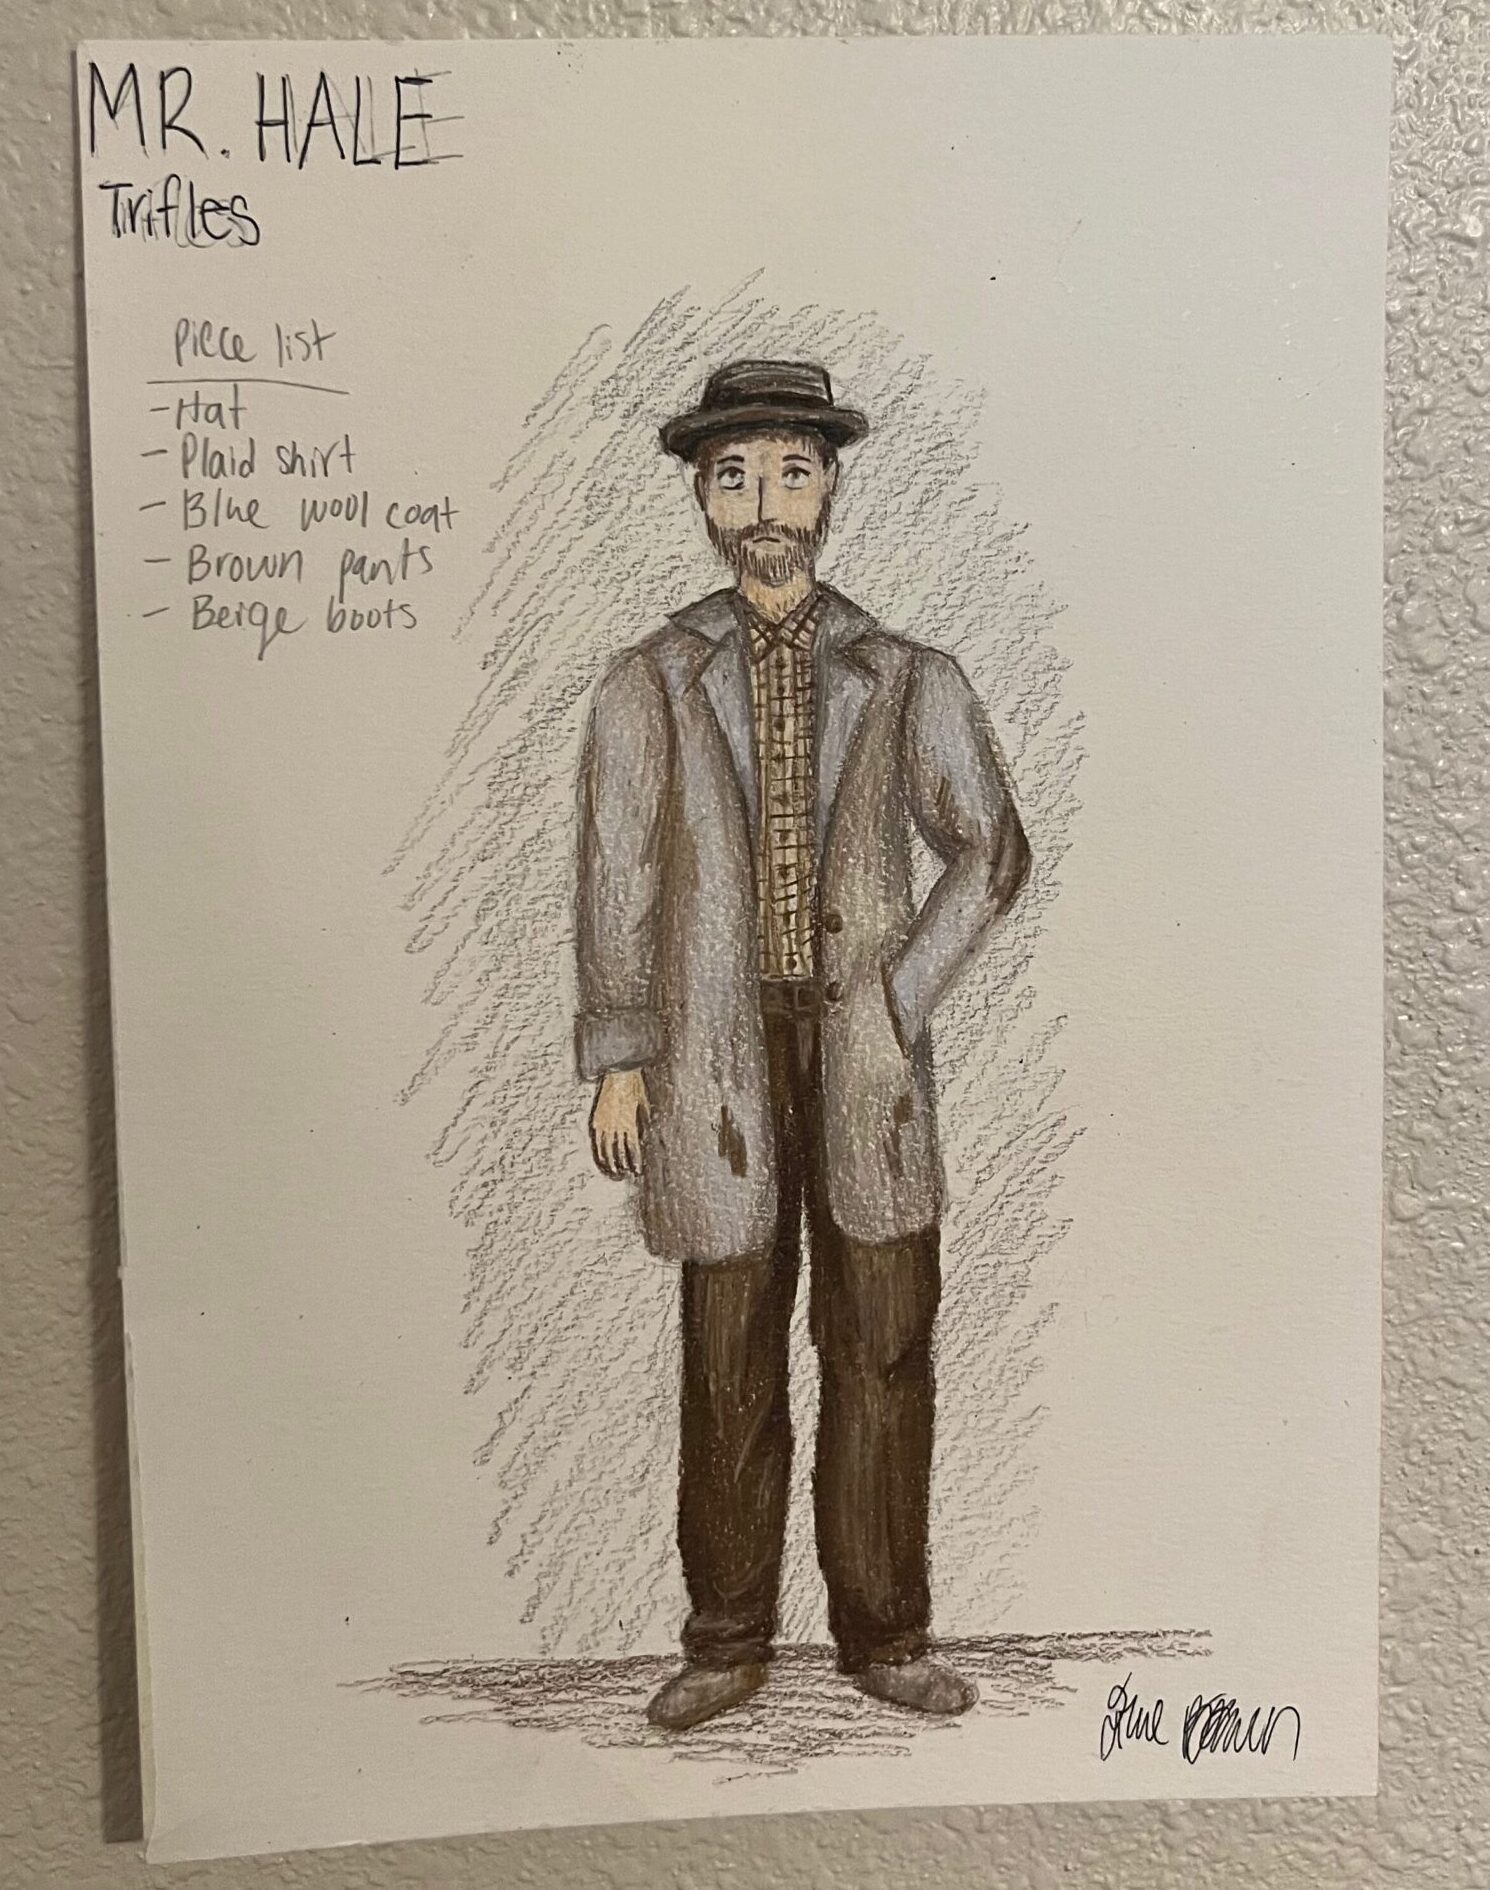 MR. HALE
Trifles
Piece list
- Hat
- Plaid shirt
- Blue wool coat
- Brown pants
- Beige boots